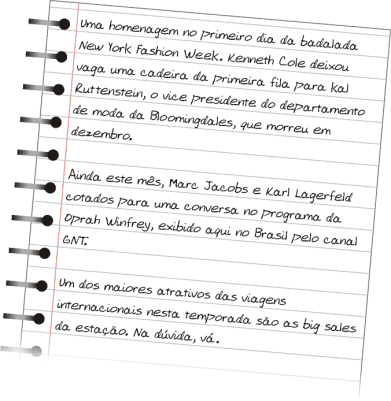 Uma homenagem no primeiro dia da badalada
New York Fashion Week. Kenneth Cole deixou
vaga uma cadeira da primeira fila para Kal
Ruttenstein, o vice presidente do departamento
de moda da Bloomingdales, que morreu em
dezembro.
Ainda este mês, Marc Jacobs e Karl Lagerfeld
cotados para uma conversa no programa da
Oprah Winfrey, exibido aqui no Brasil pelo canal
GNT.
Um dos maiores atrativos das viagens
internacionais nesta temporada são as big sales
da estação. Na dúvida, vá.